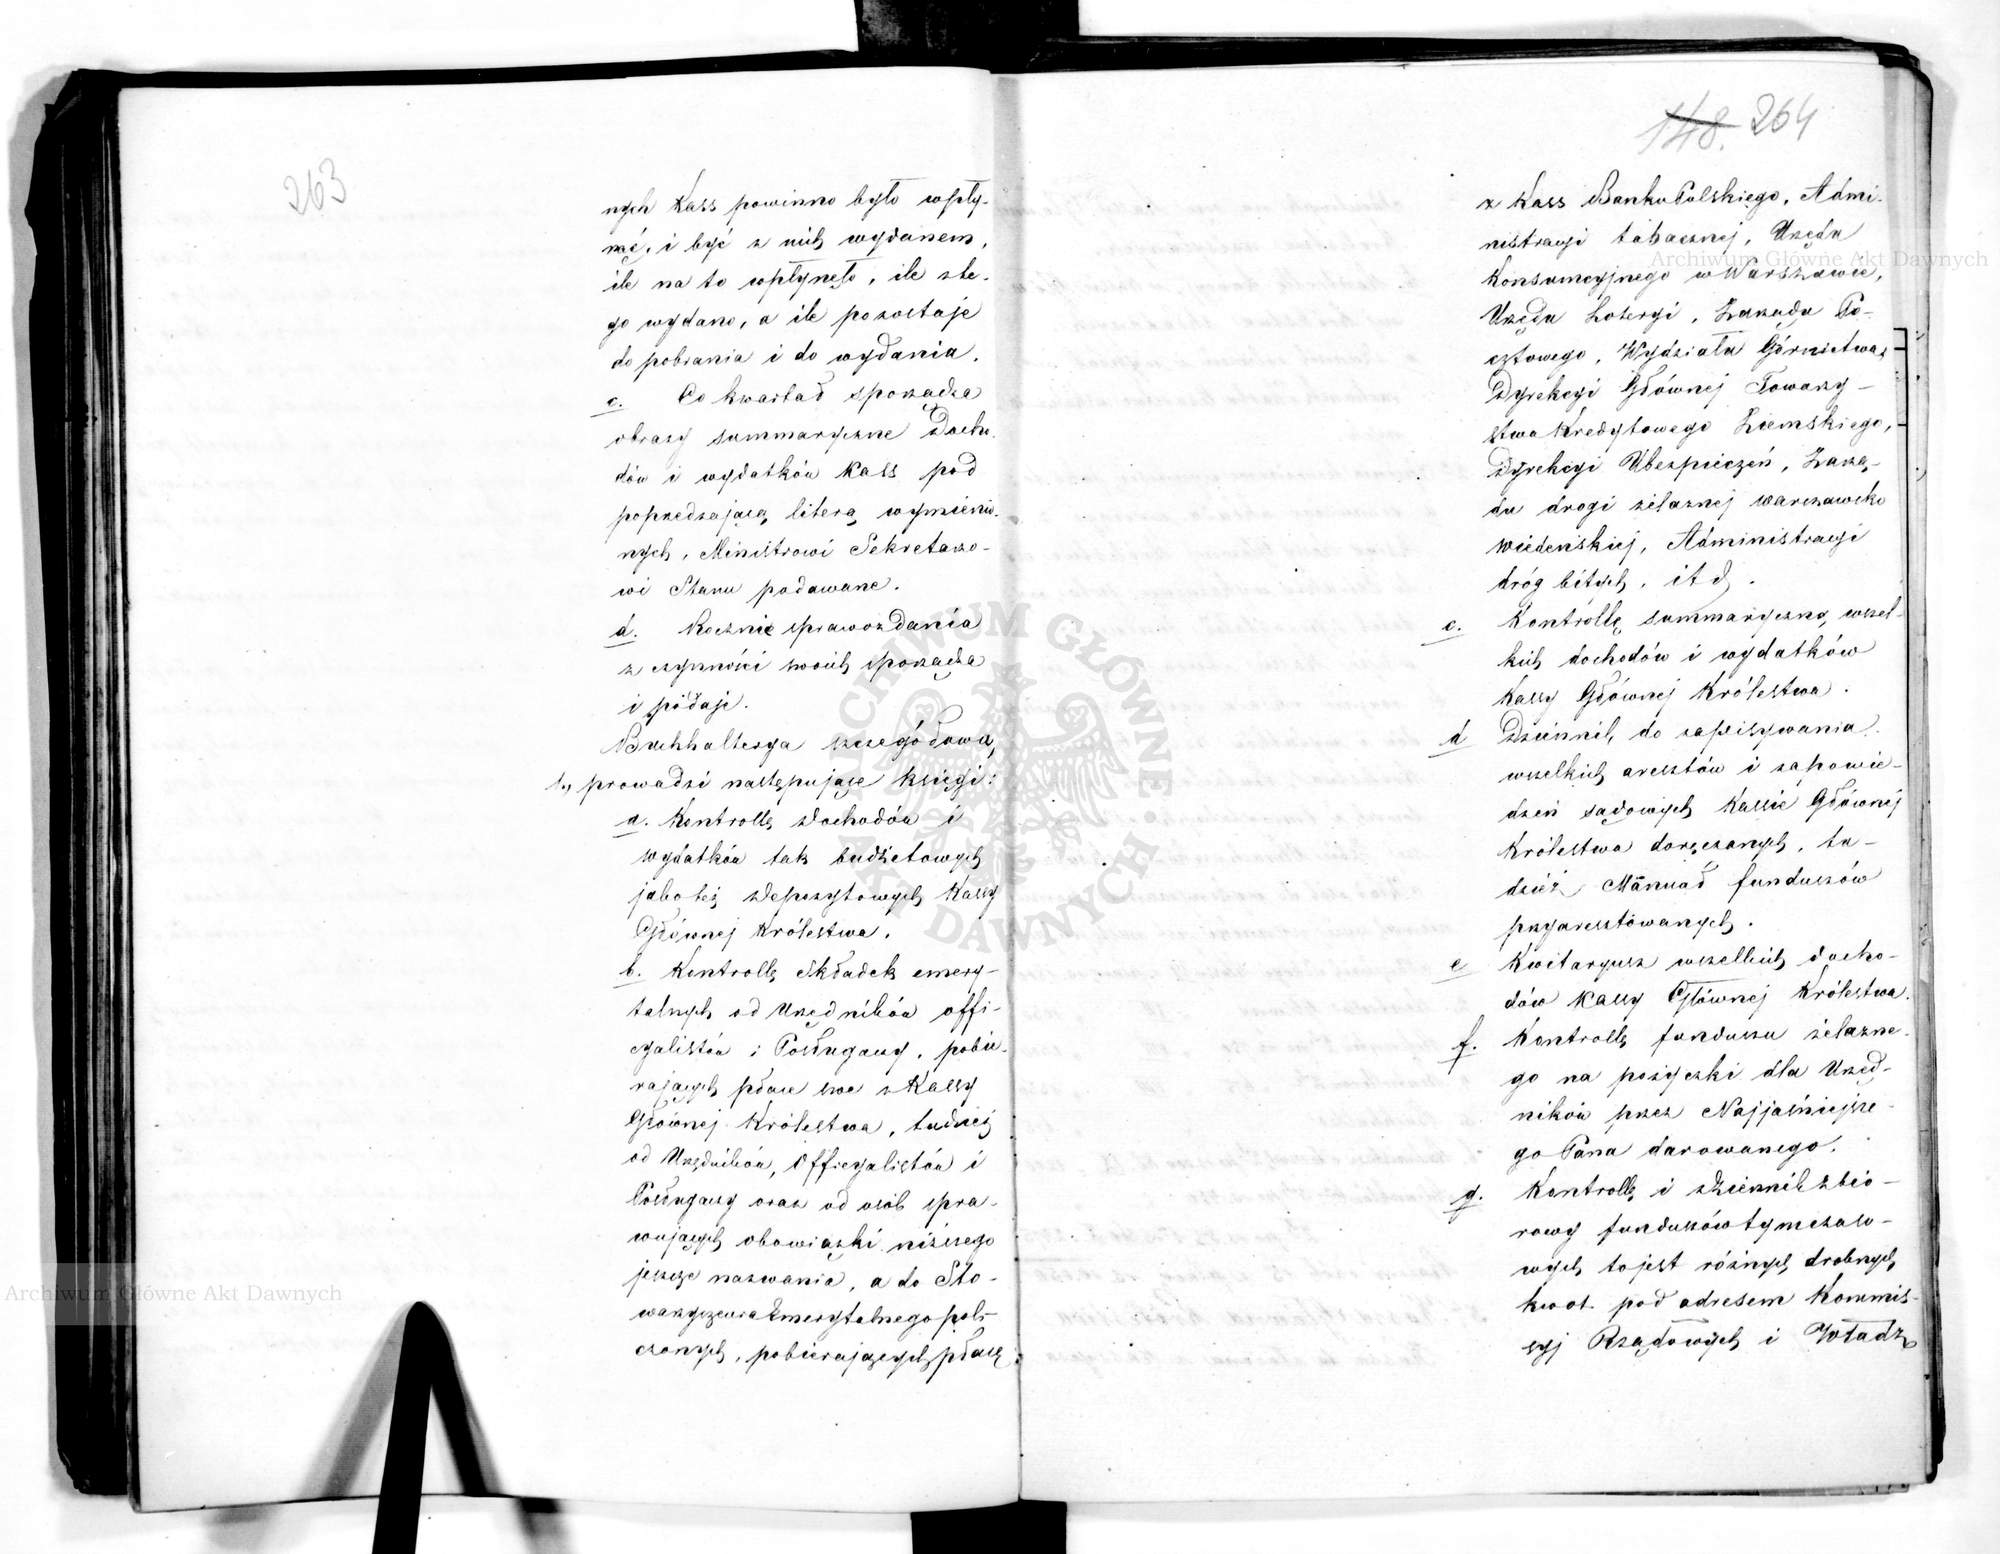 263
nych Kass powinno było wpły-
nąć, i być z nich wydanem,
ile na to wpłynęło, ile z te-
go wydano, a ile pozostaje
do pobrania i do wydania.
c. Co kwartał sporządza
obrazy summaryczne docho-
dów i wydatków Kass pod
poprzedzającą literą wymienio-
nych, Ministrowi Sekretarzo-
wi Stanu podawane.
d. Rocznie sprawozdania
z czynności swoich sporządza
i podaje.
Buchhalterya szczegółowa,
1., prowadzi następujące księgi:
a. Kontrollę dochodów i
wydatków tak budżetowych
jako też depozytowych Kassy
Głównej Królestwa.
b. Kontrollę Składek emery-
talnych od Urzędników offi-
cyalistów i Posługaczy, pobie-
rających płace swe z Kassy
Głównej Królestwa, tudzież
od Urzędników, Officyalistów i
Posługaczy oraz od osób spra-
wujących obowiązki niższego
jeszcze nazwania, a do Sto-
warzyszenia Emerytalnego poli-
czonych, pobierających płacę
148. 264
z Kass Banku Polskiego, Admi-
nistracyi tabacznej, Urzędu
Konsumcyjnego w Warszawie,
Urzędu Loteryi, Zarządu Po-
cztowego, Wydziału Górnictwa,
Dyrekcyi Głównej Towarzy-
stwa Kredytowego Ziemskiego,
Dyrekcyi Ubezpieczeń, Zarzą-
du drogi żelaznej warszawsko
wiedeńskiej, Administracyi
dróg bitych, itd.
c. Kontrollę summaryczną wszel-
kich dochodów i wydatków
Kassy Głównej Królestwa.
d Dziennik do zapisywania
wszelkich aresztów i zapowie-
dzeń sądowych Kassie Głównej
Królestwa doręczanych, tu-
dzież Manuał funduszów
przyaresztowanych.
e Kwitaryusz wszelkich docho-
dów Kassy Głównej Królestwa.
f. Kontrollę funduszu żelazne-
go na pożyczki dla Urzęd-
ników przez Najjaśniejsze-
go Pana darowanego.
g. Kontrollę i dziennik zbio-
rowy funduszów tymczaso-
wych to jest różnych drobnych
kwot pod adresem Kommis-
syj Rządowych i Władz
Archiwum Główne Akt Dawnych
Archiwum Główne Akt Dawnych
ARCHIWUM GŁÓWNE AKT DAWNYCH